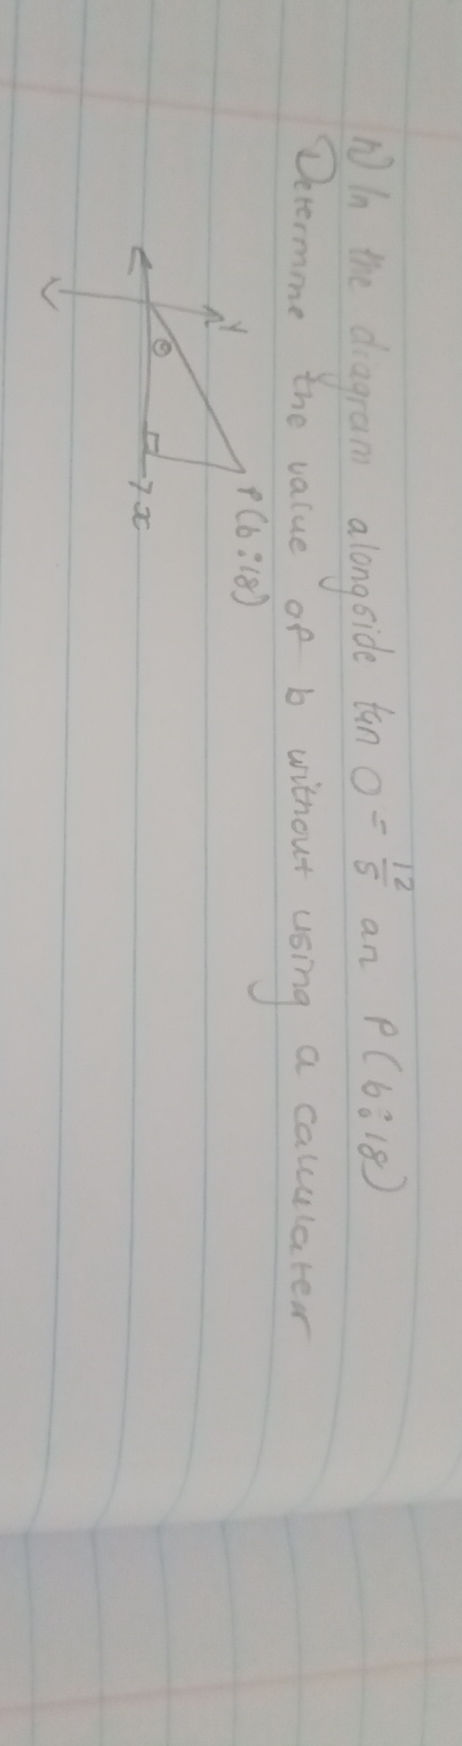 h) In the diagram alongside tan O = 12/5 an P(b:18)
Determine the value of b without using a calculater
y
P(b:18)
θ
x